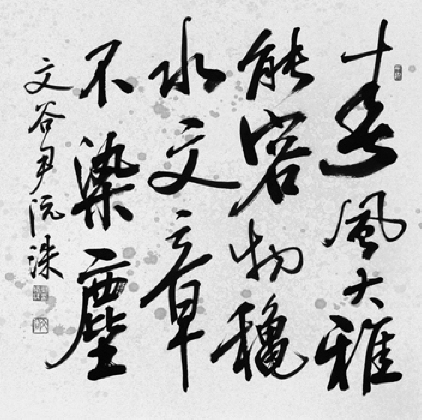 春風大雅
能容物穐
水文章
不染塵
文谷尹沅洙